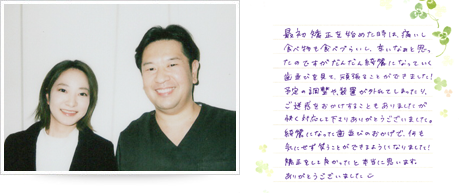 最初矯正を始めた時は、痛いし
食べ物も食べづらいし、辛いなぁと思っ
たのですがだんだん綺麗になっていく
歯並びを見て、頑張ることができました!
予定の調整や、装置が外れてしまったり、
ご迷惑をおかけすることもありましたが
快く対応して下さりありがとうございました。
綺麗になった歯並びのおかげで、何も
気にせず笑うことができるようになりました!
矯正をして良かったと本当に思います。
ありがとうございました